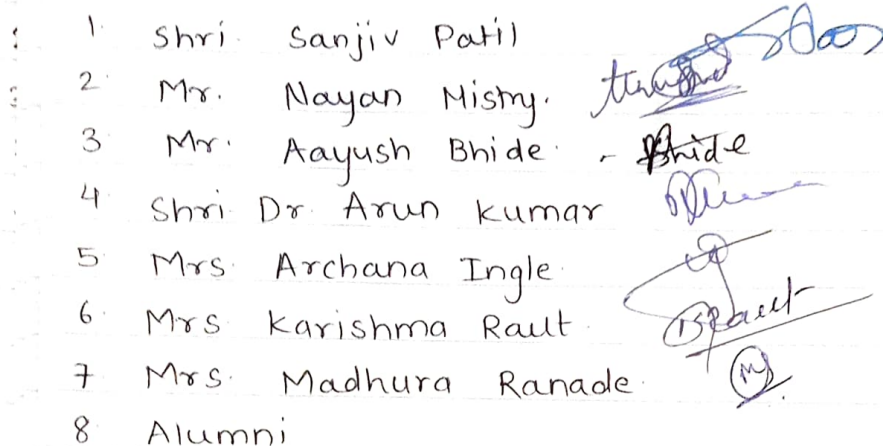 1. Shri. Sanjiv Patil
2. Mr. Nayan Mistry.
3 Mr. Aayush Bhide. - Bhide
4 Shri Dr. Arun Kumar
5 Mrs. Archana Ingle.
6. Mrs Karishma Raut. Raut
7 Mrs. Madhura Ranade.
8 Alumni